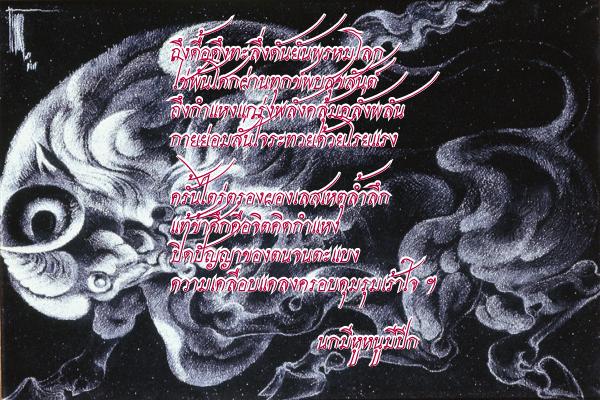 ถึงดื้อดึงทะลึ่งดันยันพรหมโลก
ใช่พ้นโศกผ่านทุกข์พบสุขสันต์
ถึงกำแหงแกร่งพลังคลุ้มอลังพลัน
กายย่อมสั่นใจระทวยด้วยโรยแรง
ครั้นใคร่ครองมองเลสเหตุล้ำลึก
แท้ข้าศึกคือจิตคิดกำแหง
ปิดปัญญาของตนจนตะแบง
ความเคลือบแคลงครอบคุมรุมเร้าใจ ฯ
นกมีหูหนูมีปีก